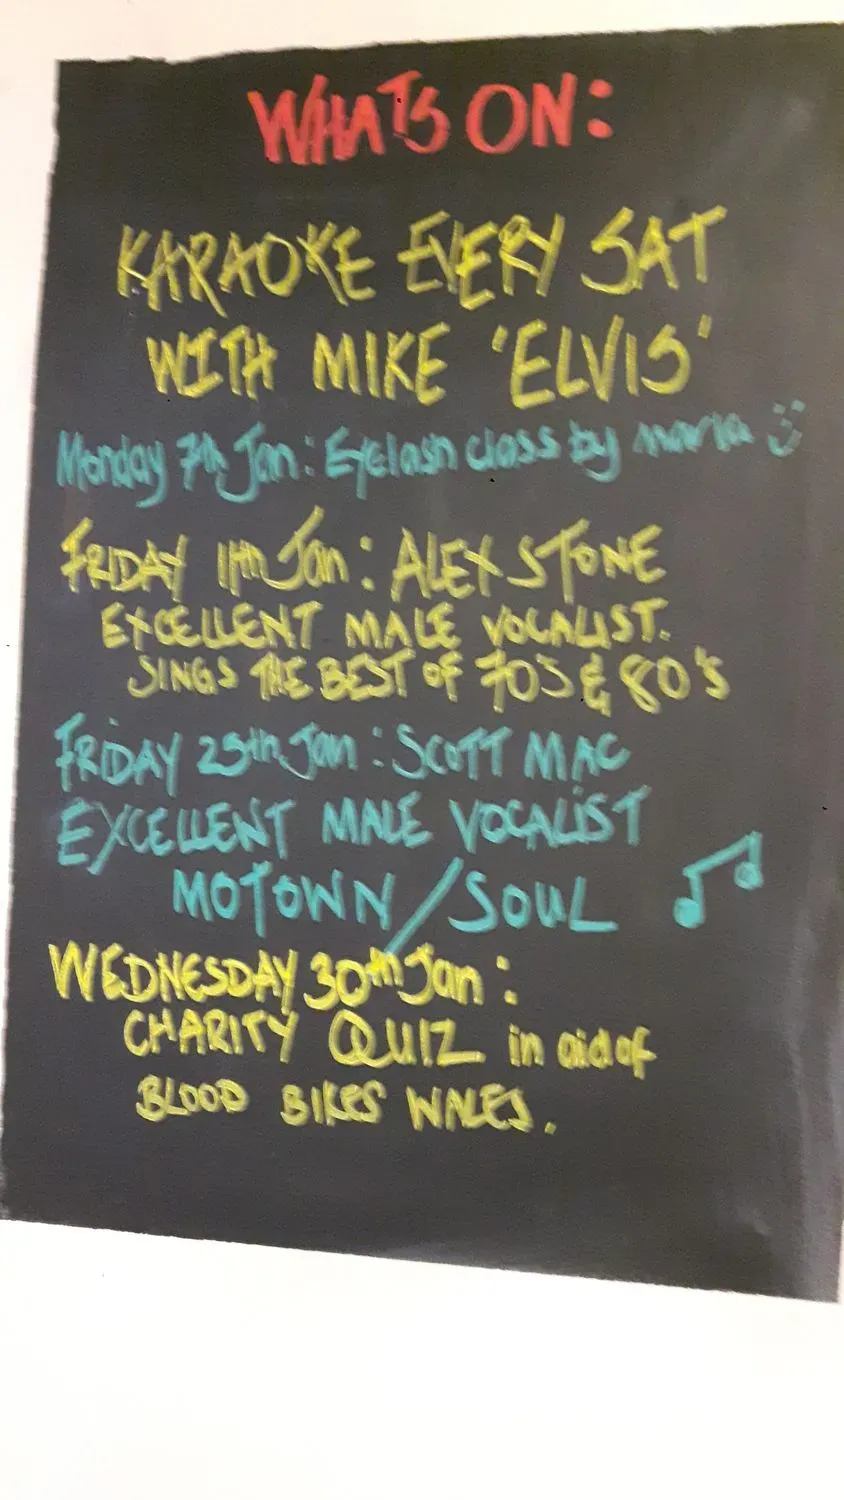 WHATS ON:
KARAOKE EVERY SAT
WITH MIKE 'ELVIS'
Monday 7th Jan: Eyelash class by maria
FRIDAY 11th Jan: ALEX STONE
EXCELLENT MALE VOCALIST.
SINGS THE BEST OF 70'S & 80'S
FRIDAY 25th Jan: SCOTT MAC
EXCELLENT MALE VOCALIST
MOTOWN/SOUL
WEDNESDAY 30th Jan:
CHARITY QUIZ in aid of
BLOOD BIKES WALES.